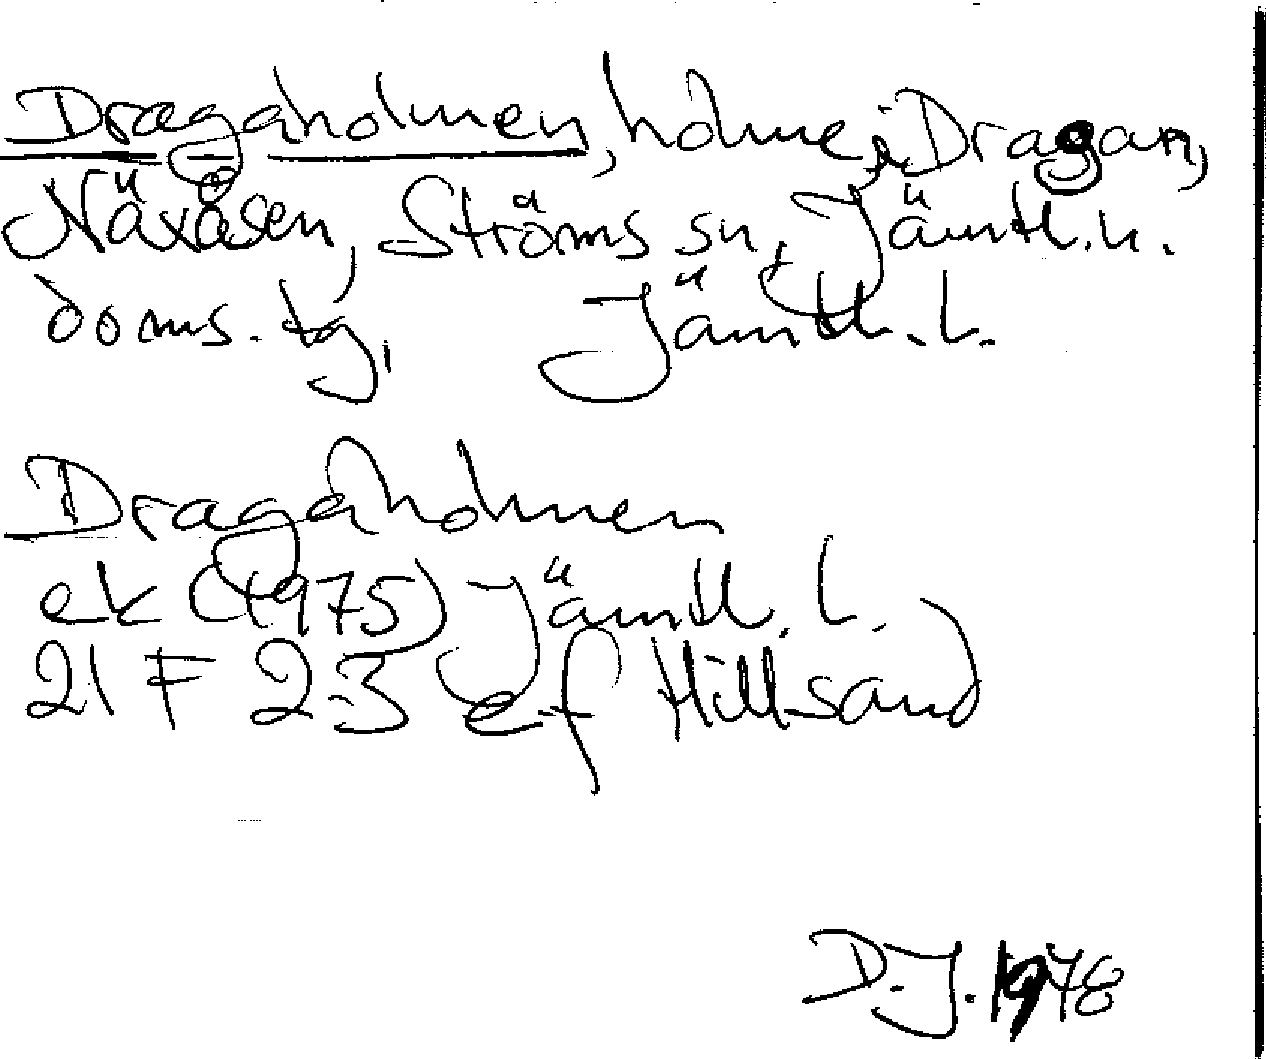 Dragaholmen, holme i Dragan,
Näxåsen, Ströms sn, Jämtl. n.
doms. tg, Jämtl. l.
Dragaholmen
ek (1975) Jämtl. l.
21 F 2-3 ef Hillsand
D.J. 1978